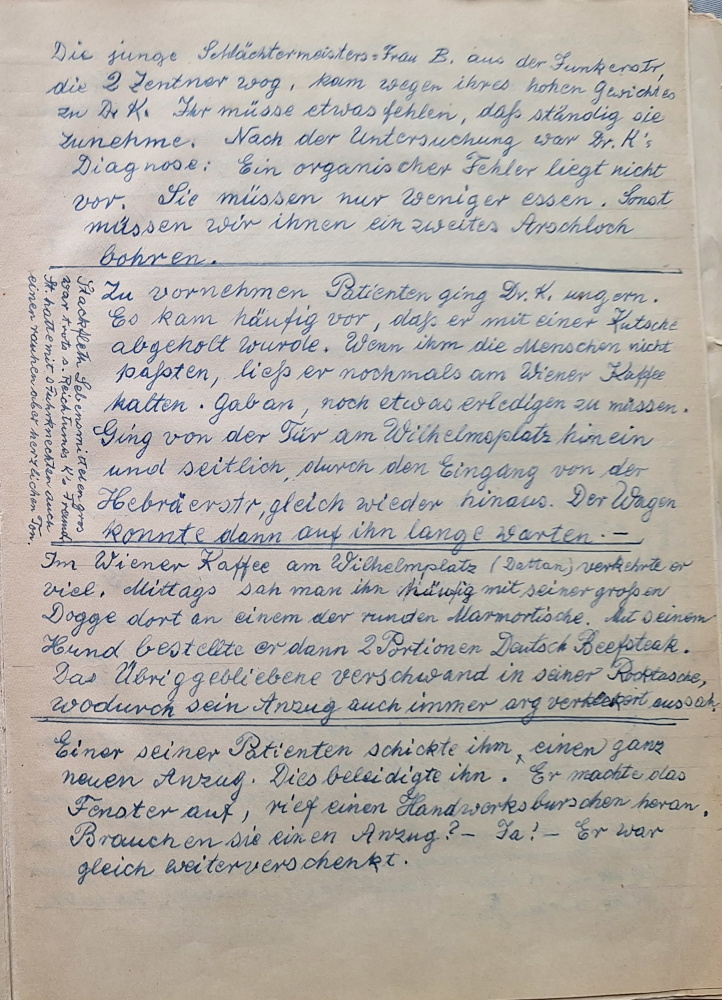 Die junge Schlächtermeisters=Frau B. aus der Junkerstr,
die 2 Zentner wog, kam wegen ihres hohen Gewichtes
zu Dr K. Ihr müsse etwas fehlen, daß ständig sie
zunehme. Nach der Untersuchung war Dr. K's
Diagnose: Ein organischer Fehler liegt nicht
vor. Sie müssen nur weniger essen. Sonst
müssen wir ihnen ein zweites Arschloch
bohren.
Zu vornehmen Patienten ging Dr. K. ungern.
Es kam häufig vor, daß er mit einer Kutsche
abgeholt wurde. Wenn ihm die Menschen nicht
paßten, ließ er nochmals am Wiener Kaffee
halten. Gab an, noch etwas erledigen zu müssen.
Ging von der Tür am Wilhelmsplatz hinein
und seitlich, durch den Eingang von der
Hebräerstr, gleich wieder hinaus. Der Wagen
konnte dann auf ihn lange warten. —
Stackfleth Lebensmittelengros
war trotz s. Reichtumes K's Freund.
St. hatte mit s Fuhrknechten auch
einen rauhen aber herzlichen Ton.
Im Wiener Kaffee am Wilhelmplatz (Dattan) verkehrte er
viel. Mittags sah man ihn häufig mit seiner großen
Dogge dort an einem der runden Marmortische. Mit seinem
Hund bestellte er dann 2 Portionen Deutsch Beefsteak.
Das Übriggebliebene verschwand in seiner Rocktasche,
wodurch sein Anzug auch immer arg verkleckert aussah.
Einer seiner Patienten schickte ihm einen ganz
neuen Anzug. Dies beleidigte ihn. Er machte das
Fenster auf, rief einen Handwerksburschen heran.
Brauchen sie einen Anzug? — Ja! — Er war
gleich weiterverschenkt.